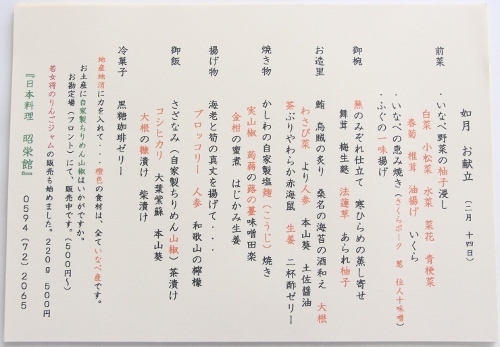 如月 お献立 (二月 十四日)
前菜
・いなべ野菜の柚子浸し
白菜 小松菜 水菜 菜花 青梗菜
春菊 椎茸 油揚げ いくら
・いなべの恵み焼き(さくらポーク 葱 仕人十味噌)
・ふぐの一味揚げ
御椀
蕪のみぞれ仕立て 寒ひらめの蒸し寄せ
舞茸 梅生麩 法蓮草 あられ柚子
お造里
鮪 烏賊の炙り 桑名の海苔の酒和え 大根
わさび菜 より人参 本山葵 土佐醤油
茶ぶりやわらか赤海鼠 生姜 二杯酢ゼリー
焼き物
かしわの自家製塩麹(こうじ)焼き
実山椒 蒟蒻の蕗の薹味噌田楽
金柑の蜜煮 はじかみ生姜
揚げ物
海老と筍の真丈を揚げて・・・
ブロッコリー 人参 和歌山の檸檬
御飯
さざなみ(自家製ちりめん山椒)茶漬け
コシヒカリ 大葉紫蘇 本山葵
大根の糠漬け 柴漬け
冷菓子
黒糖珈琲ゼリー
地産地消に力を入れて・・・橙色の食材は、全ていなべ産です。
お土産に自家製ちりめん山椒はいかがですか。
お勘定場(フロント)にて、販売中です。(500円~)
若女将のりんごジャムの販売も始めました。220g 500円
『日本料理 昭栄館』 0594(72)2065